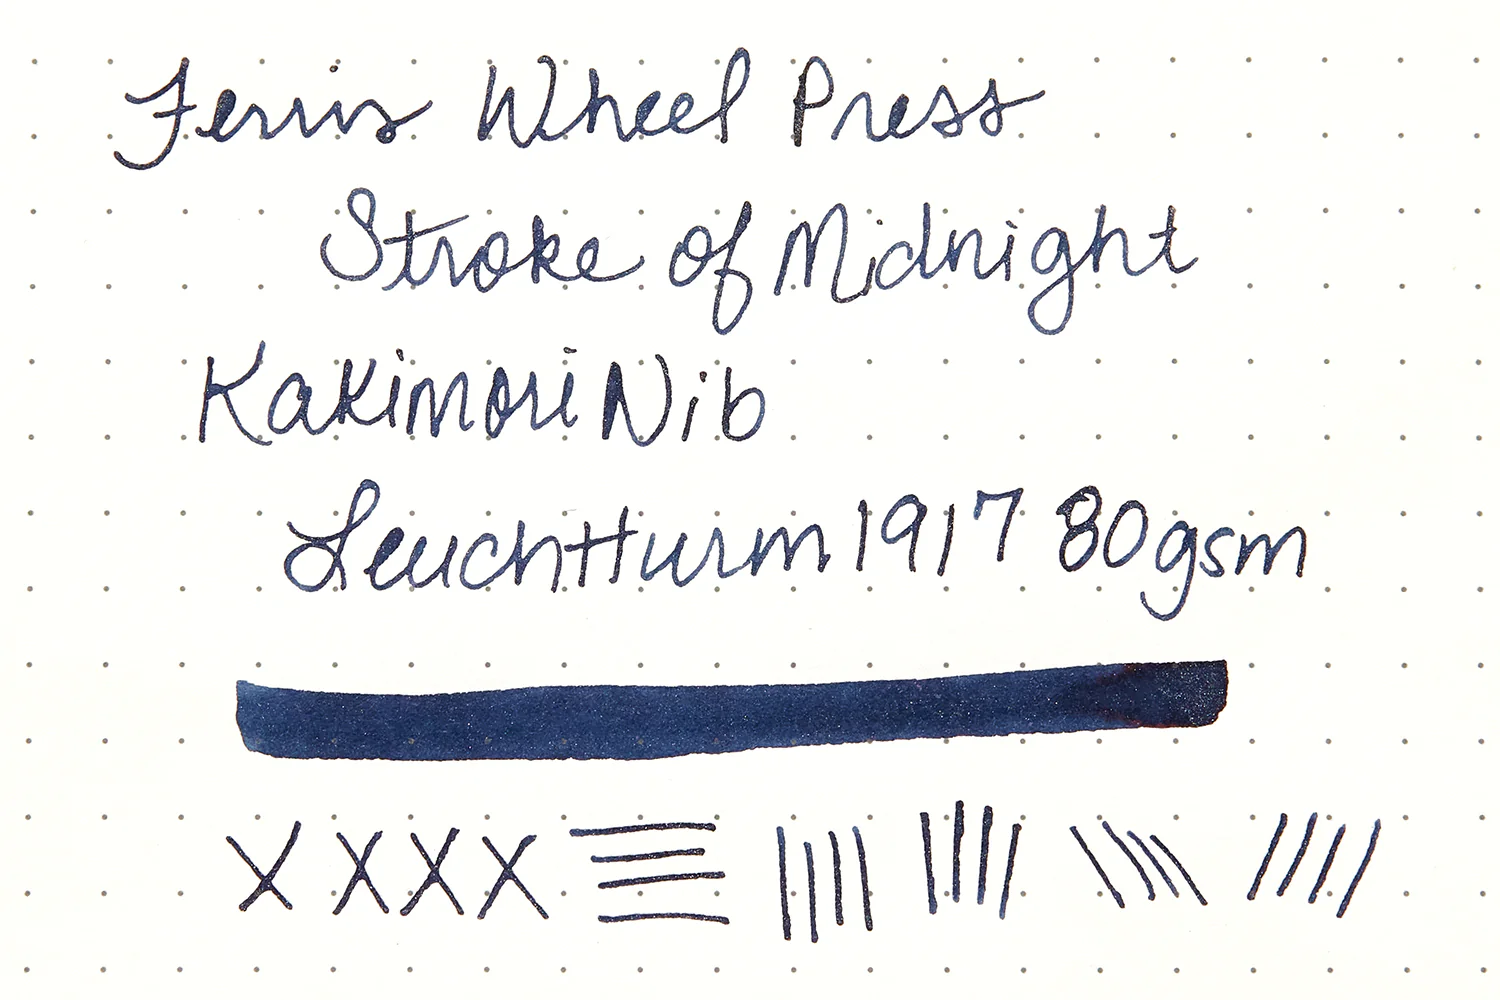 Ferris Wheel Press
Stroke of Midnight
Kakimori Nib
Leuchtturm 1917 80gsm